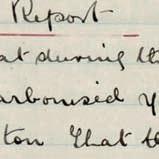 Report
at during th
arbonised y
ton that th